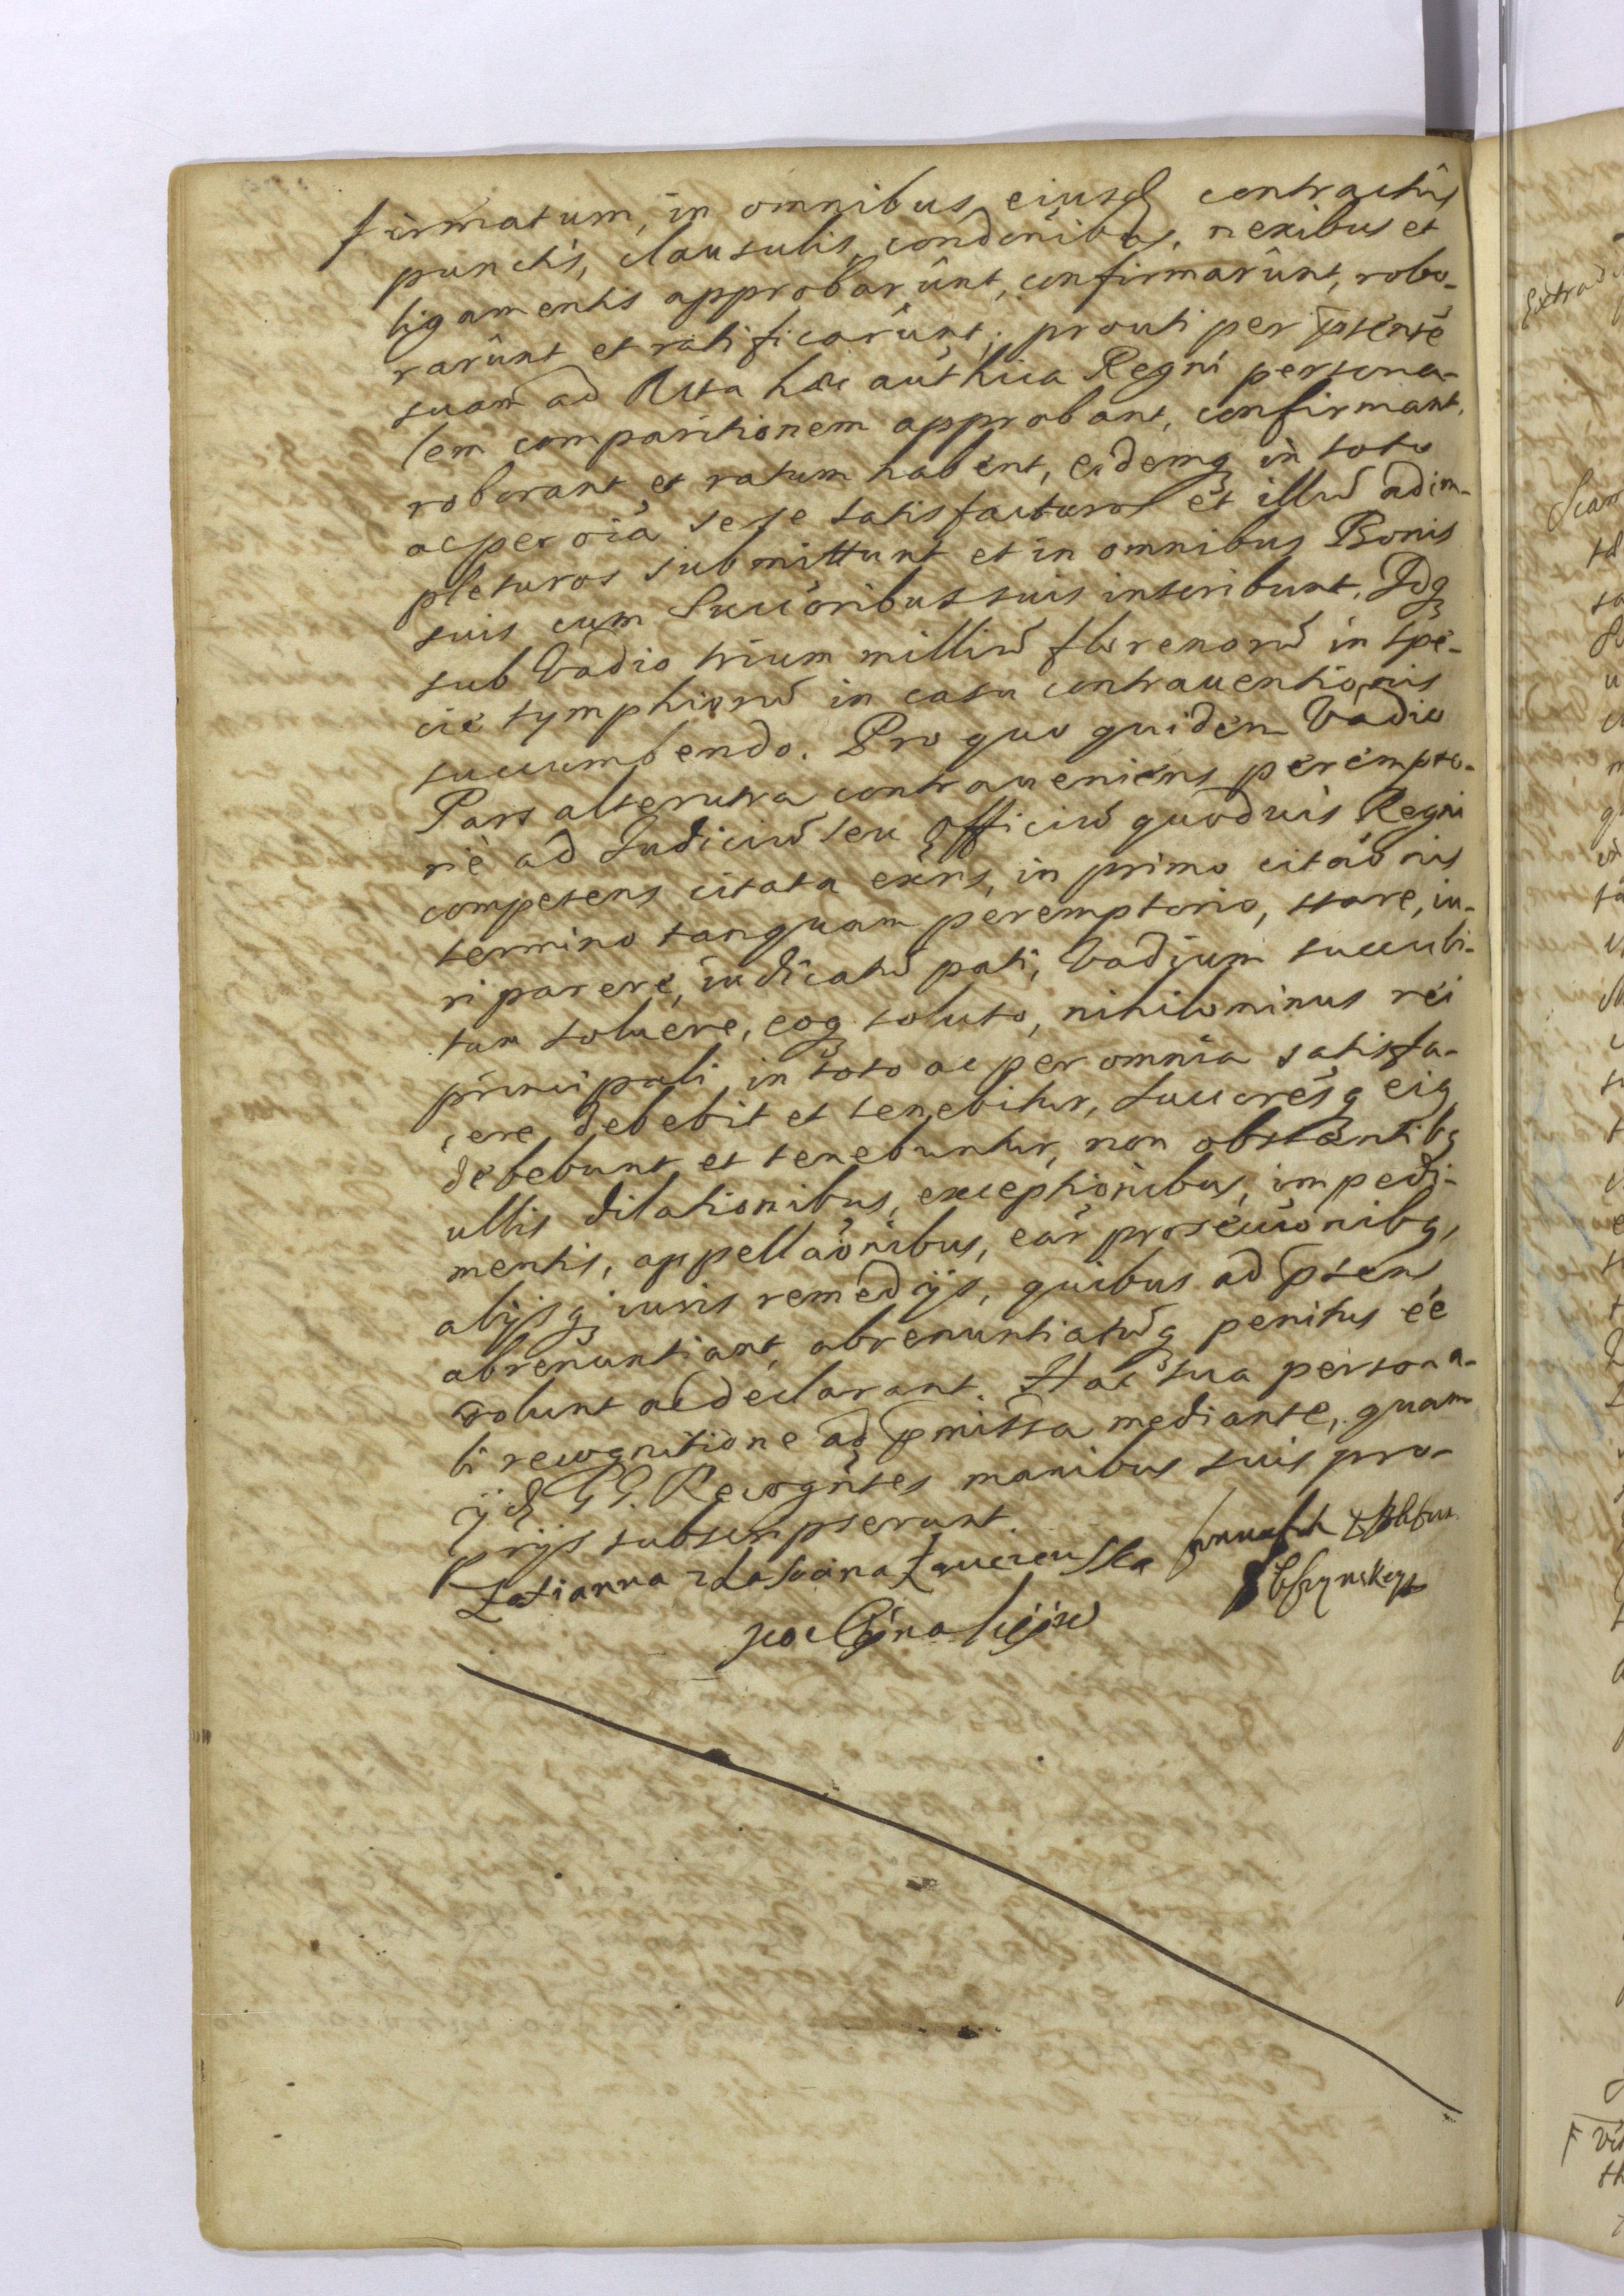 firmatum, in omnibus eiusd contractûs
punctis, clausulis, condõnibus, nexibus et
ligamentis approbarûnt, confirmarûnt, robo-
rarûnt et ratificarûnt; prouti per pstentẽ
suam ad Acta haec authica Regni persona-
lem comparitionem approbant, confirmant,
roborant et ratum habent, eidemq in toto
ac per oĩa sese satisfacturos et illud adim-
pleturos submittunt et in omnibus Bonis
suis cum Succoribus suis inscribunt. Idq
sub Vadio trium milliũ florenorũ in spe-
cie tymphiorũ in casu contrauentionis
succumbendo. Pro quo quidem Vadio
Pars alterutra contraueniens perempto-
riè ad Iudiciũ seu Officiũ quoduis Regni
competens citata exñs, in primo citãonis
termino tanquam peremptorio, stare, iu-
ri parere, iudicatũ pati, Vadium succubi-
tum soluere, eoq soluto, nihilominus rei
principali in toto ac per omnia satisfa-
cere debebit et tenebitur, Succoresq eiq
debebunt et tenebuntur, non obstantibq
ullis dilationibus, exceptionibus, impedi-
mentis, appellãonibus, eãr prosecuõnibq,
alijsq iuris remedijs, quibus ad pstens
abrenuntiant, abrenuntiatũq penitus eẽ
volunt ac declarant. Hac sua persona-
li recognitione ad pmissa mediante, quam
ijd GG. Recognñtes manibus suis pro-
prijs subscripserunt.